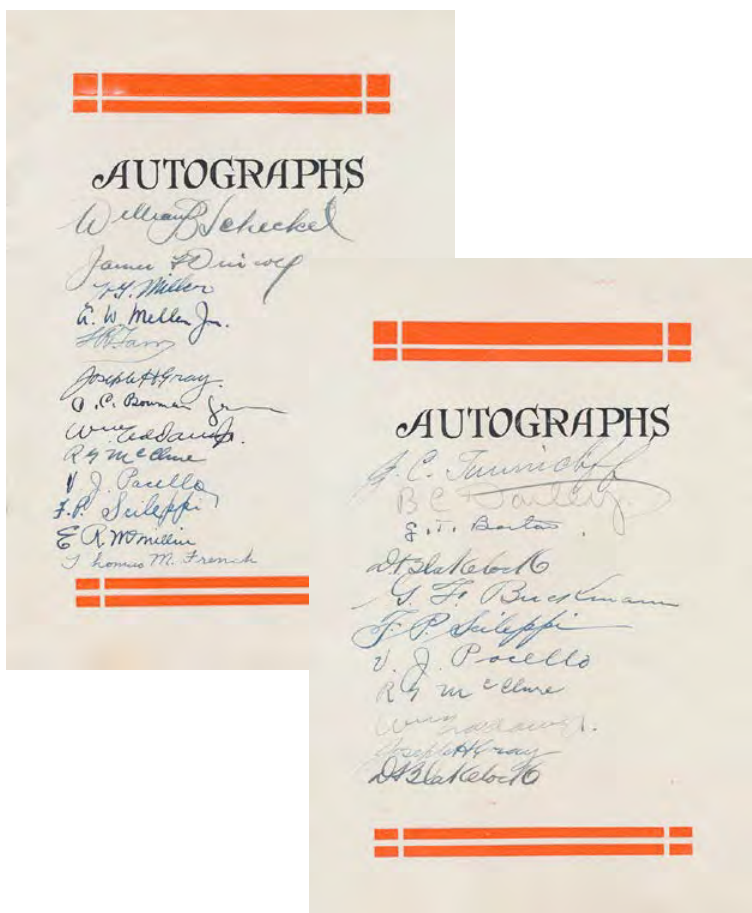 AUTOGRAPHS
William B Scheckel
James F
H. Miller
G. W. Mellen Jr.
Joseph H Gray.
A. C. Bowman Jr
Wm
R G McClure
V J Pacello
F. P. Scileppi
E R McMillin
Thomas M. French
AUTOGRAPHS
G. C. Tunnicliff
B C
G. T. Barton.
D. Blakelock
G. F. Buckmann
F. P. Scileppi
V. J. Pacello
R G McClure
Wm
Joseph H Gray
D. Blakelock